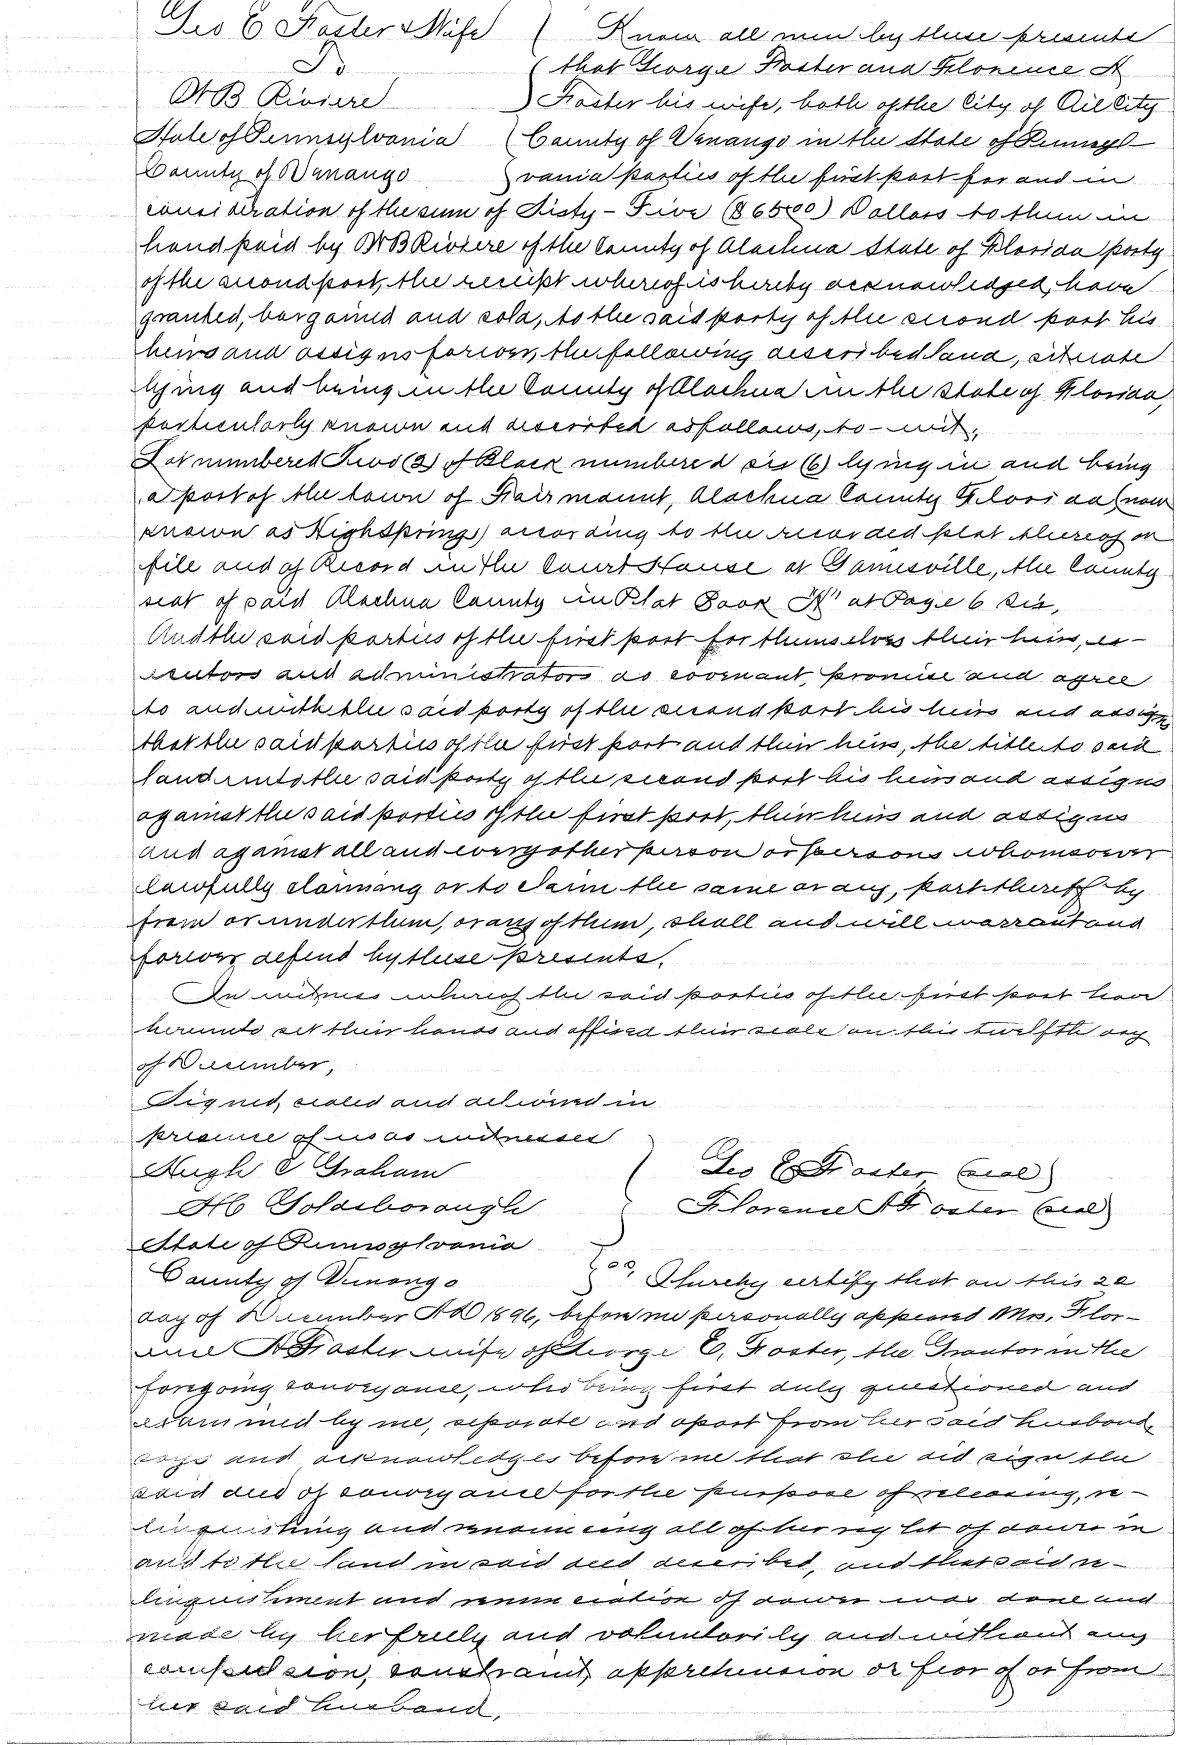 Geo E Foster & Wife
To
W B Riviere
State of Pennsylvania
County of Venango
Know all men by these presents
that George Foster and Florence A
Foster his wife, both of the City of Oil City
County of Venango in the State of Pennsyl-
vania parties of the first part for and in
consideration of the sum of Sixty-Five ($6500) Dollars to them in
hand paid by W B Riviere of the County of Alachua State of Florida party
of the second part, the receipt whereof is hereby acknowledged, have
granted, bargained and sold, to the said party of the second part his
heirs and assigns forever, the following described land, situate
lying and being in the County of Alachua in the State of Florida,
particularly known and described as follows, to-wit;
Lot numbered Two (2) of Block numbered six (6) lying in and being
a part of the town of Fairmount, Alachua County Florida (now
known as High Springs) according to the recorded plat thereof on
file and of Record in the Court House at Gainesville, the County
seat of said Alachua County in Plat Book "A" at Page 6 Six,
And the said parties of the first part for themselves their heirs, ex-
ecutors and administrators do covenant, promise and agree
to and with the said party of the second part his heirs and assigns
that the said parties of the first part and their heirs, the title to said
land unto the said party of the second part his heirs and assigns
against the said parties of the first part, their heirs and assigns
and against all and every other person or persons whomsoever
lawfully claiming or to claim the same or any, part thereof by
from or under them, or any of them, shall and will warrant and
forever defend by these presents.
In witness whereof the said parties of the first part have
hereunto set their hands and affixed their seals on this twelfth day
of December,
Signed, sealed and delivered in
presence of us as witnesses
Hugh C Graham
H C Goldsborough
Geo E Foster (seal)
Florence A Foster (seal)
State of Pennsylvania
County of Venango
ss, I hereby certify that on this 22
day of December AD 1896, before me personally appeared Mrs. Flor-
ence A Foster wife of George E. Foster, the Grantor in the
foregoing conveyance, who being first duly questioned and
examined by me, separate and apart from her said husband,
says and acknowledges before me that she did sign the
said deed of conveyance for the purpose of releasing, re-
linquishing and renouncing all of her right of dower in
and to the land in said deed described, and that said re-
linquishment and renunciation of dower was done and
made by her freely and voluntarily and without any
compulsion, constraint, apprehension or fear of or from
her said husband.